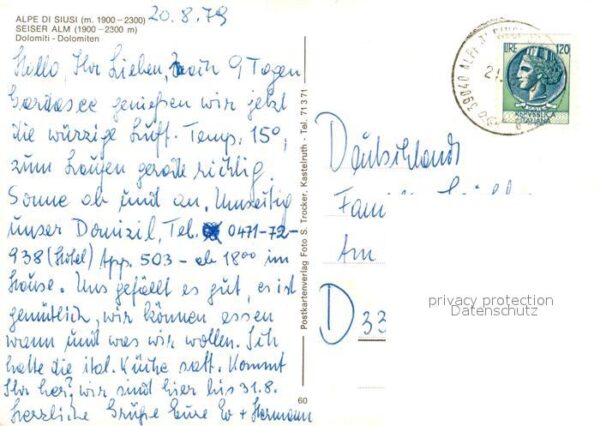 ALPE DI SIUSI (m. 1900–2300)
SEISER ALM (1900–2300 m)
Dolomiti - Dolomiten
20.8.79
Hallo, Ihr Lieben, nach 9 Tagen
Gardasee genießen wir jetzt
die würzige Luft. Temp. 15°,
zum Laufen gerade richtig.
Sonne ab und an. Umseitig
unser Domizil, Tel. 0471-72-
938 (Hotel) App. 503 - ab 18⁰⁰ im
Hause. Uns gefällt es gut, es ist
gemütlich, wir können essen
wann und was wir wollen. Ich
hatte die ital. Küche satt. Kommt
Ihr her? wir sind hier bis 31.8.
Herzliche Grüße Eure Ev + Hermann
Postkartenverlag Foto S. Trocker, Kastelruth - Tel. 71371
60
39040 ALPE DI SIUSI
LIRE 120
Deutschland
Fam
Am
D 33
privacy protection
Datenschutz